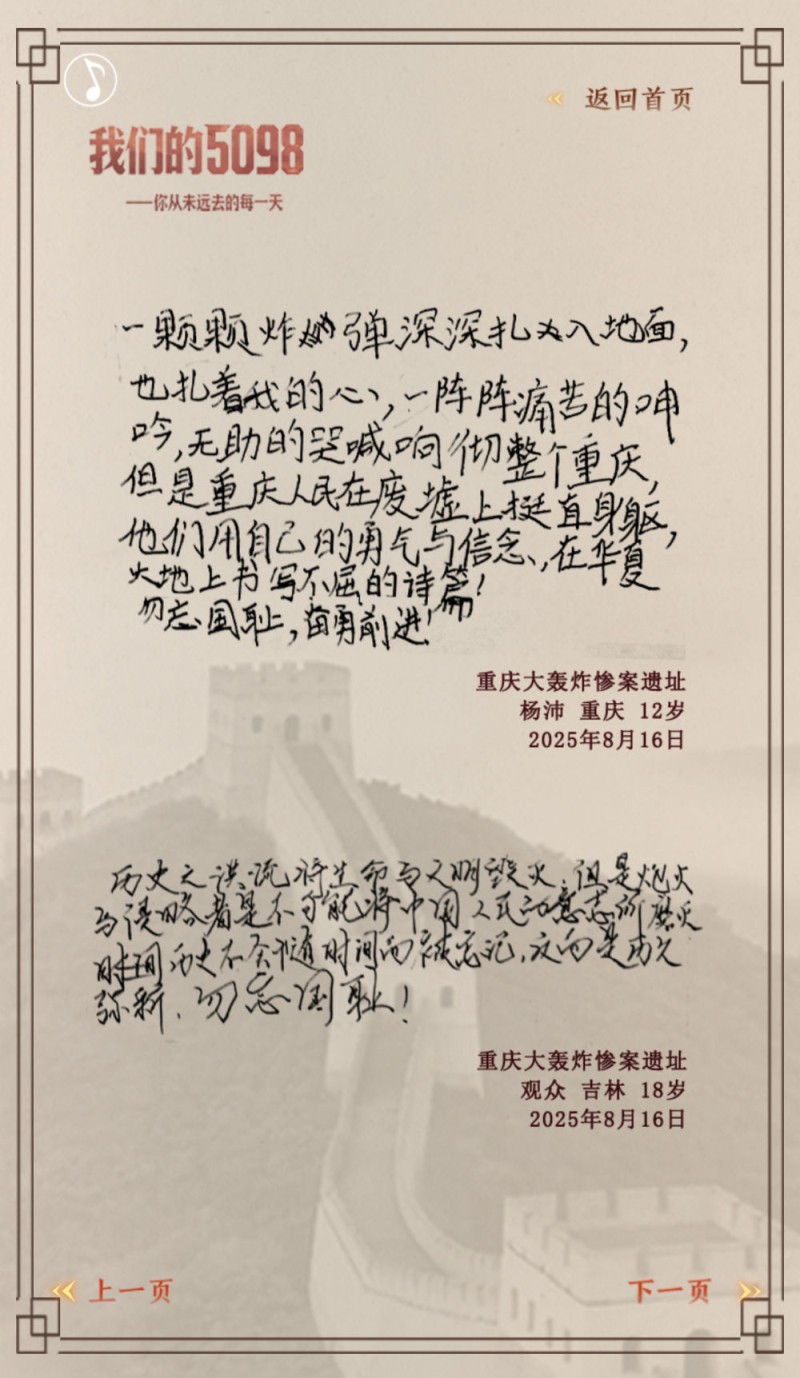 返回首页
我们的5098
——你从未远去的每一天
一颗颗炸弹深深扎入地面，
也扎着我的心，一阵阵痛苦的呻
吟，无助的哭喊响彻整个重庆，
但是重庆人民在废墟上挺直身躯，
他们用自己的勇气与信念，在华夏
大地上书写不屈的诗篇！
勿忘国耻，奋勇前进！
重庆大轰炸惨案遗址
杨沛 重庆 12岁
2025年8月16日
历史之洪流将生命与文明毁灭，但是炮火
与侵略者是不可能将中国人民的意志所磨灭
时间历史不会随时间而被忘记，反而是历久
弥新．勿忘国耻！
重庆大轰炸惨案遗址
观众 吉林 18岁
2025年8月16日
上一页
下一页